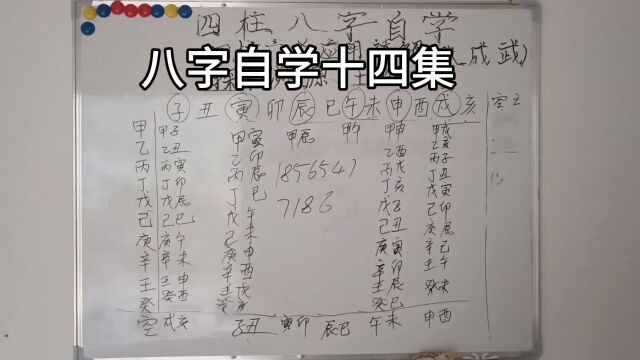 四柱八字自学
成武)
八字自学十四集
子 丑 寅 卯 辰 巳 午 未 申 酉 戌 亥
甲 甲子 甲寅 甲辰 甲午 甲申 甲戌
乙 乙丑 乙卯 乙酉 乙亥
丙 丙寅 丙辰 1856547 丙戌 丙子
丁 丁卯 丁巳 丁亥 丁丑
戊 戊辰 戊午 7186 戊子 戊寅
己 己巳 己未 己丑 己卯
庚 庚午 庚申 庚寅 庚辰
辛 辛未 辛酉 辛卯 辛巳
壬 壬申 壬戌 壬辰 壬午
癸 癸酉 癸亥 癸巳 癸未
空 戌亥 子丑 寅卯 辰巳 午未 申酉